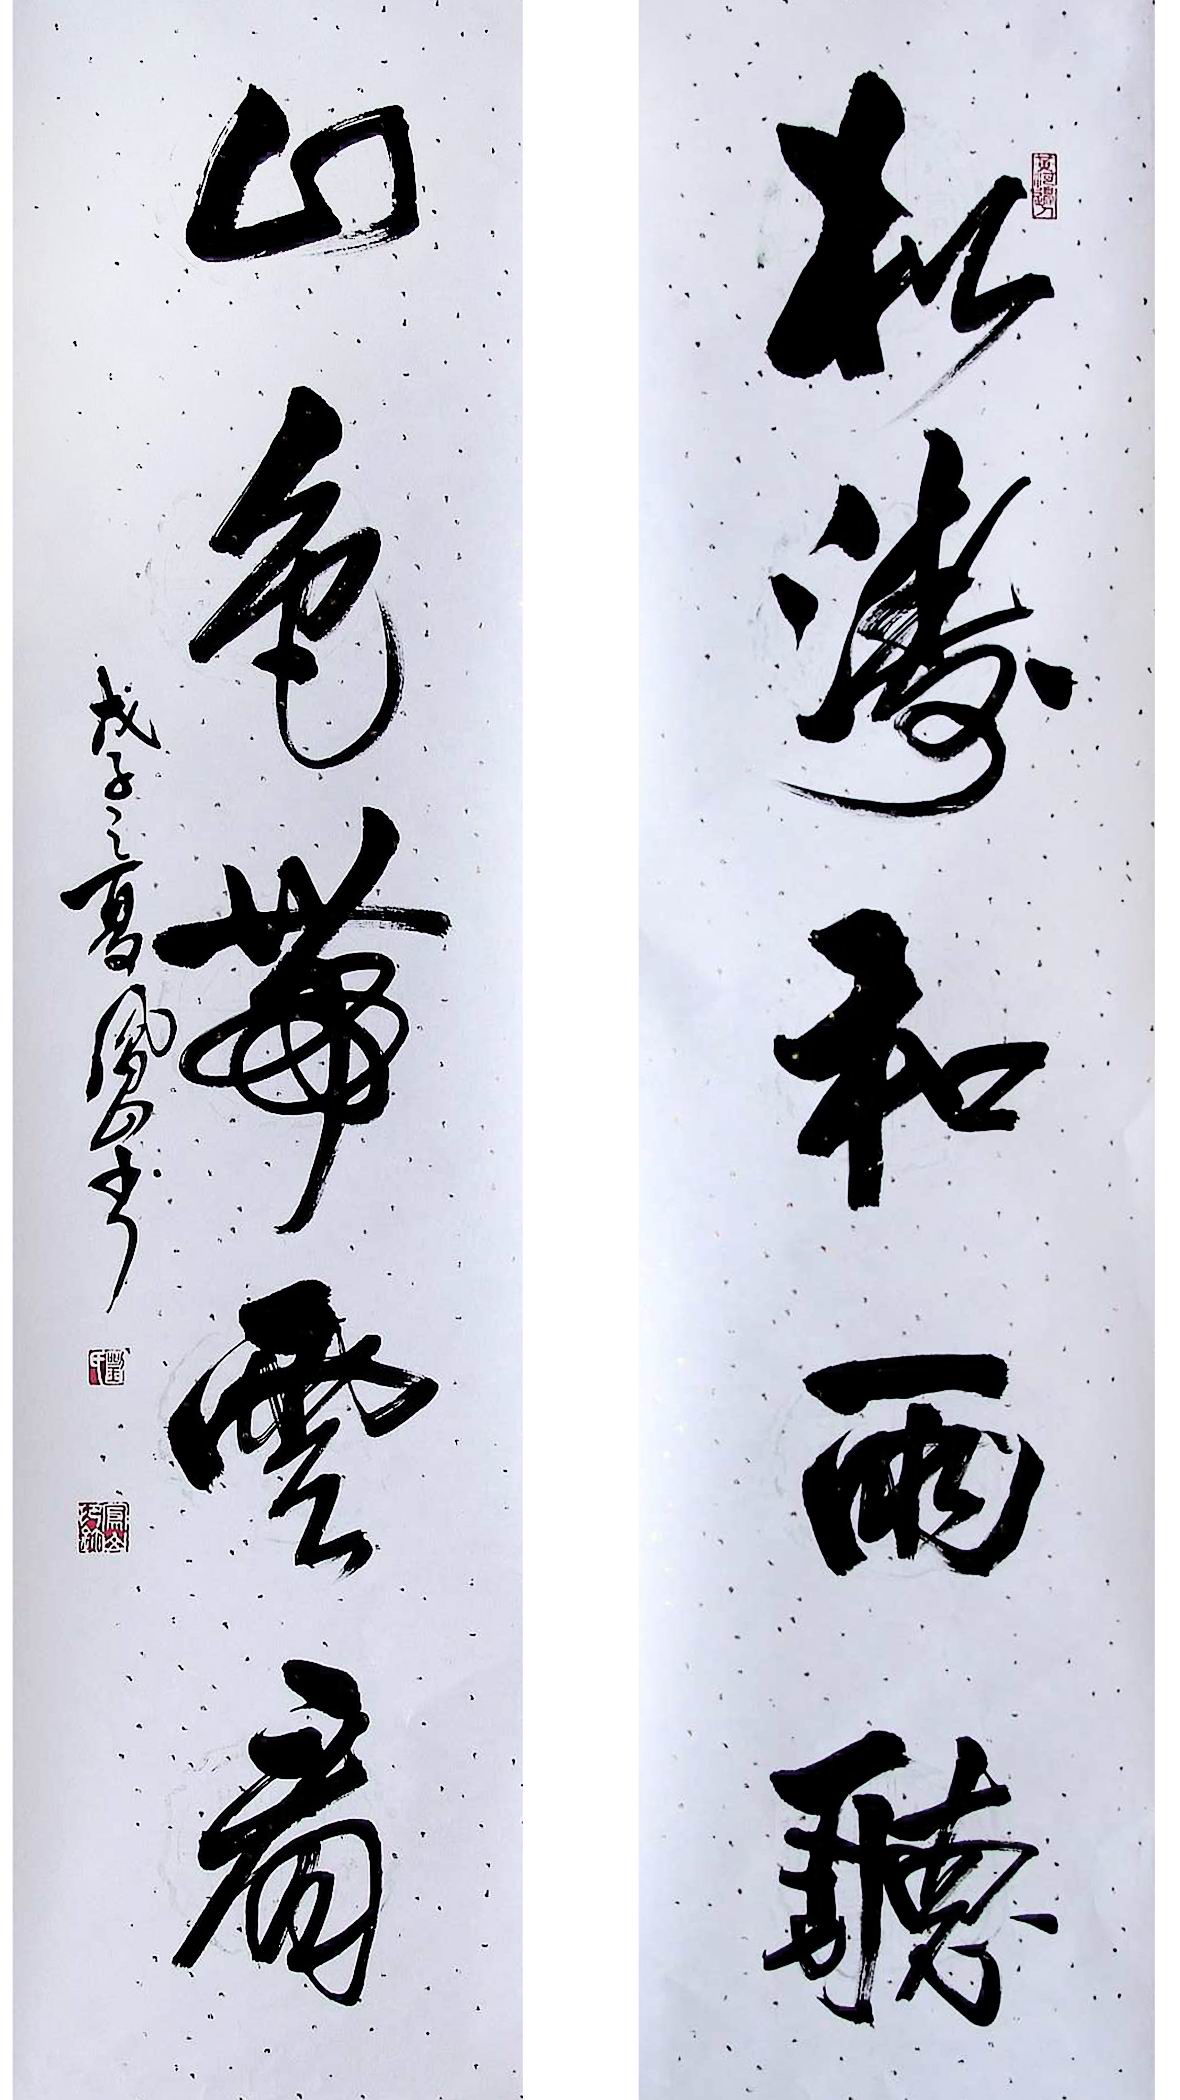 松濤和雨聽
山色帶雲看
戊子之夏鳳山書